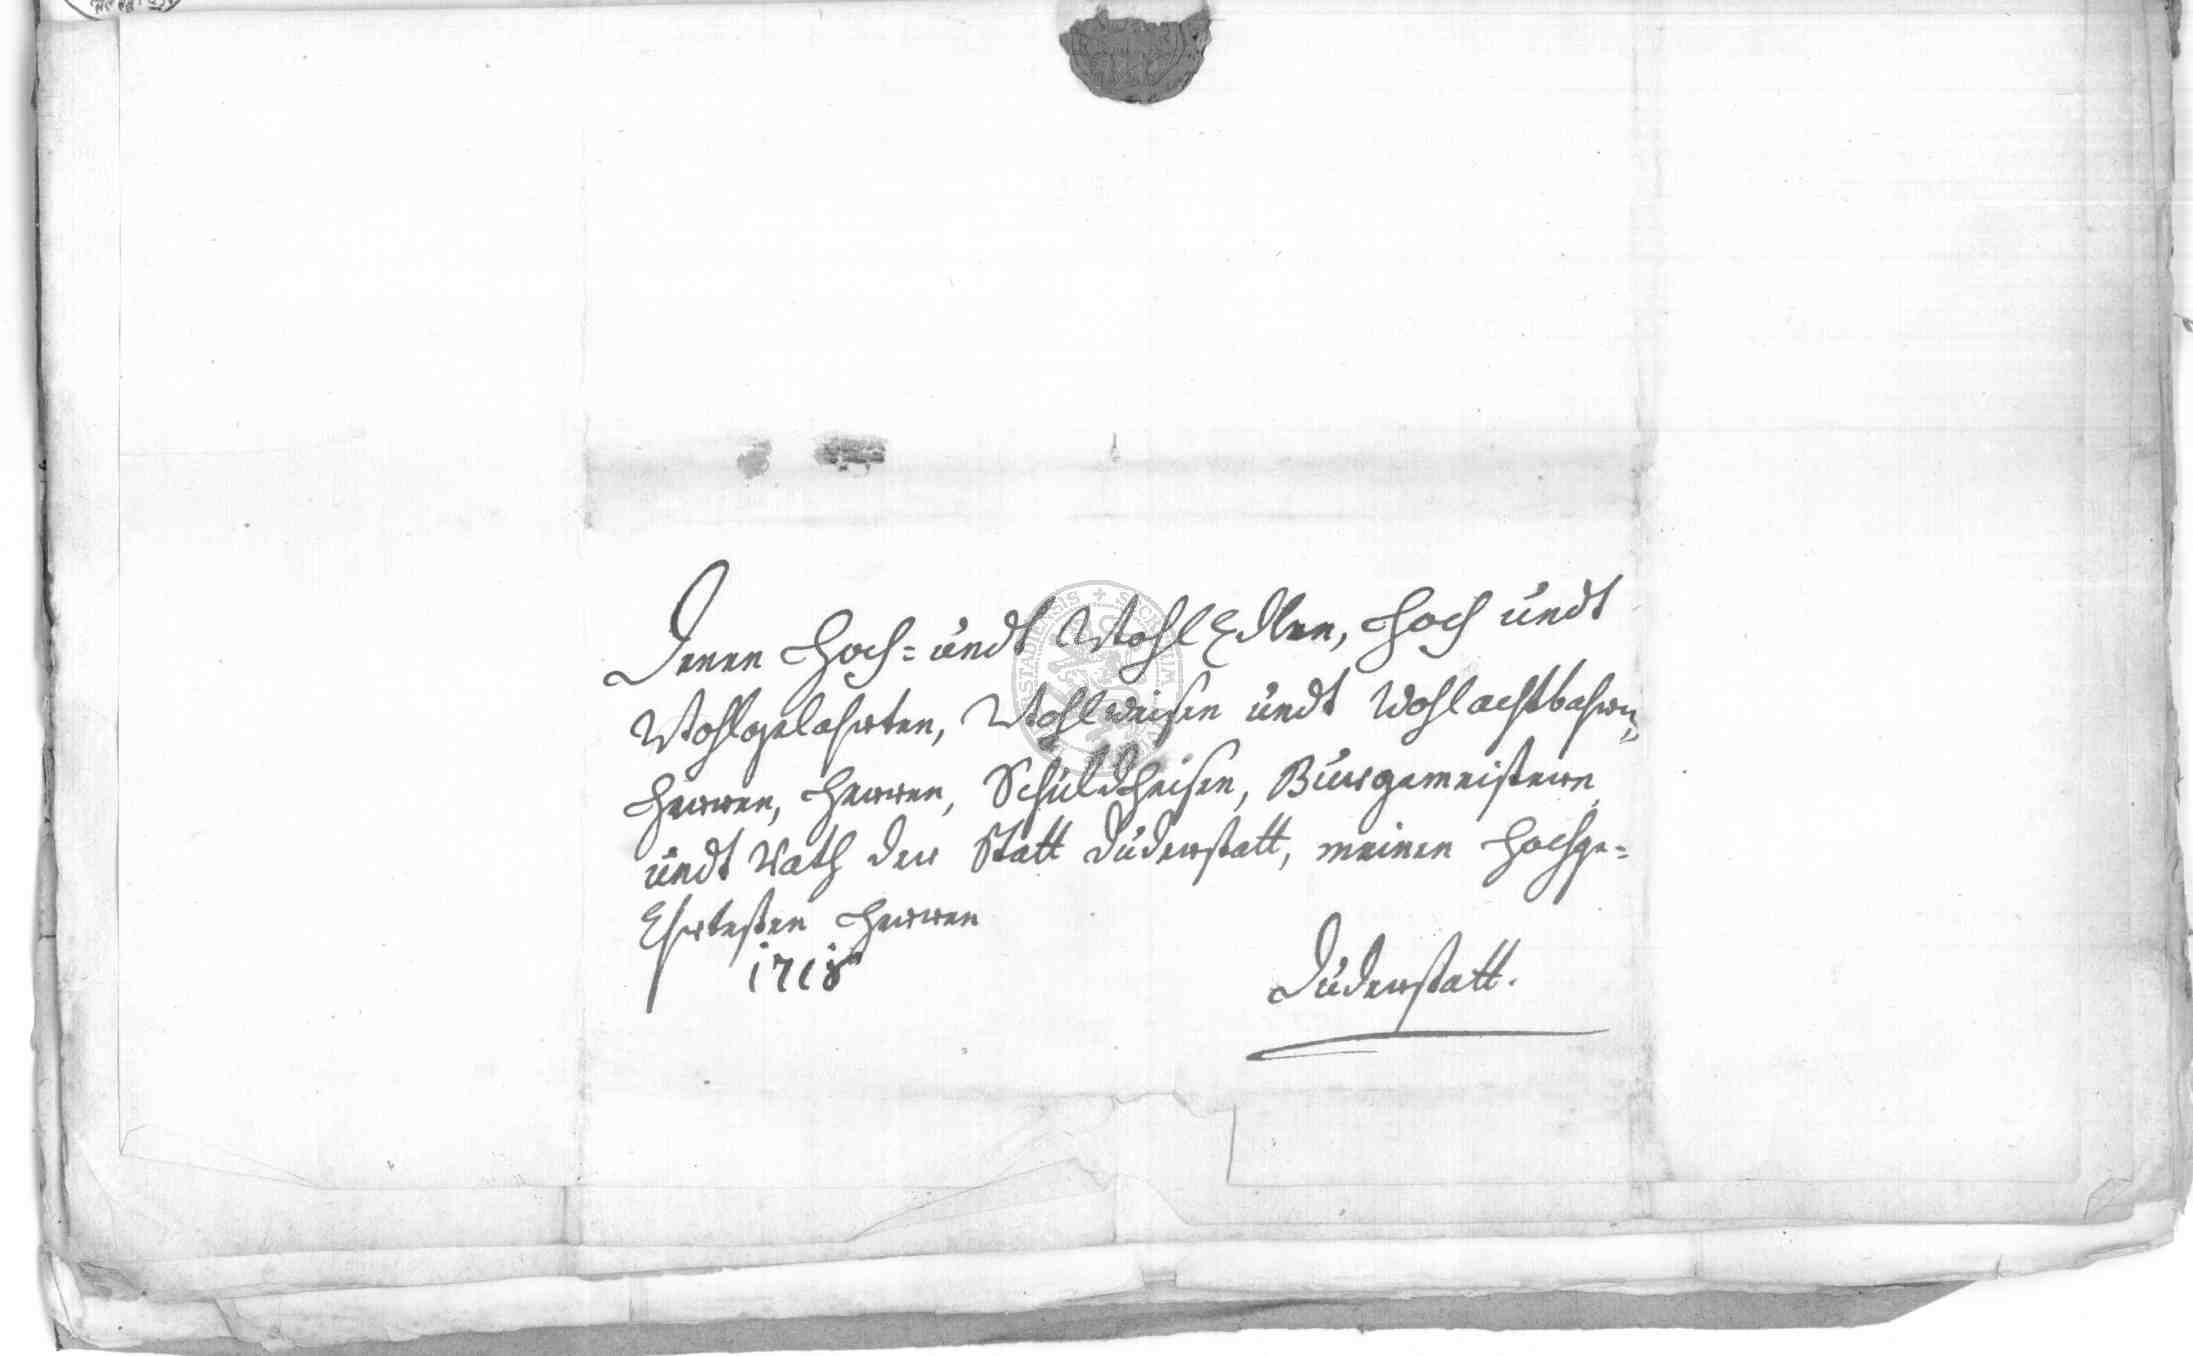 Denen Hoch= undt WohlEdlen, Hoch undt
Wohlgelahrten, Wohlweisen undt Wohlachtbahren,
Herren, Herren, Schuldtheisen, Burgemeistern
undt Rath der Statt Duderstatt, meinen Hochge=
Ehrtesten Herren
1718
Duderstatt.